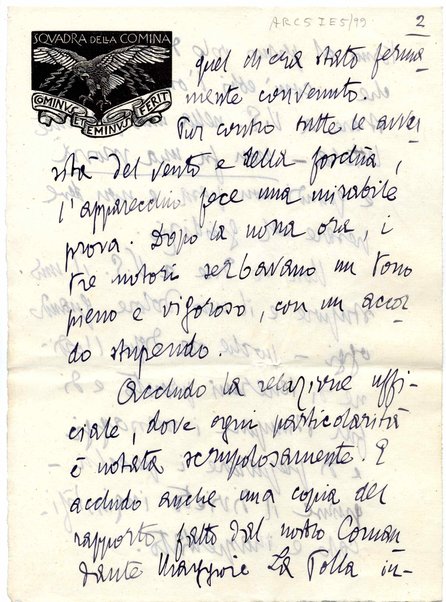 ARC5IE5/99
2
SQVADRA DELLA COMINA
COMINVS ET EMINVS FERIT
quel di era stato ferma
mente convenuto.
Pur contro tutte le avver
sità del vento e della foschia,
l'apparecchio fece una mirabile
prova. Dopo la nona ora, i
tre motori serbavano un tono
pieno e vigoroso, con un accor
do stupendo.
Accludo la relazione uffi-
ciale, dove ogni particolarità
è notata scrupolosamente. E
accludo anche una copia del
rapporto fatto dal nostro Coman
dante Maggiore La Polla in-